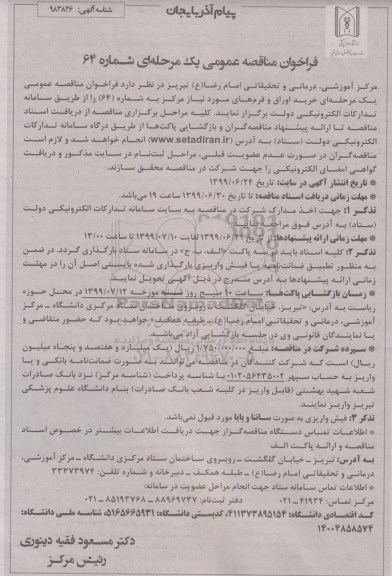 پیام آذربایجان
شناسه آگهی: ۹۸۳۸۲۶
فراخوان مناقصه عمومی یک مرحله‌ای شماره ۶۴
مرکز آموزشی، درمانی و تحقیقاتی امام رضا(ع) تبریز در نظر دارد فراخوان مناقصه عمومی
یک مرحله‌ای خرید اوراق و فرم‌های مورد نیاز مرکز به شماره (۶۴) را از طریق سامانه
تدارکات الکترونیکی دولت برگزار نماید. کلیه مراحل برگزاری مناقصه از دریافت اسناد
مناقصه تا ارائه پیشنهاد مناقصه‌گران و بازگشایی پاکت‌ها از طریق درگاه سامانه تدارکات
الکترونیکی دولت (ستاد) به آدرس (www.setadiran.ir) انجام خواهد شد و لازم است
مناقصه‌گران در صورت عدم عضویت قبلی، مراحل ثبت‌نام در سایت مذکور و دریافت
گواهی امضای الکترونیکی را جهت شرکت در مناقصه محقق سازند.
* تاریخ انتشار آگهی در سایت: تاریخ ۱۳۹۹/۰۶/۲۴
* مهلت زمانی دریافت اسناد مناقصه: تا تاریخ ۱۳۹۹/۰۶/۳۰ ساعت ۱۹ می‌باشد.
تذکر ۱: جهت اخذ مدارک شرکت در مناقصه به سایت سامانه تدارکات الکترونیکی دولت
(ستاد) به آدرس فوق مراجعه
* مهلت زمانی ارائه پیشنهادها: از تاریخ ۱۳۹۹/۰۶/۳۱ لغایت ۱۳۹۹/۰۷/۱۰ تا ساعت ۱۳:۰۰
تذکر ۲: کلیه اسناد باید در سه پاکت «الف، ب، ج» در سامانه ستاد بارگذاری گردد. در ضمن
به منظور تطبیق ضمانت‌نامه یا فیش واریزی بارگذاری شده بایستی اصل آن را در مهلت
زمانی ارائه پیشنهادها به آدرس مندرج در ذیل آگهی تحویل نمایند.
* زمان بازگشایی پاکت‌ها: ساعت ۱۰ صبح روز شنبه مورخه ۱۳۹۹/۰۷/۱۲ در محل حوزه
ریاست به آدرس: «تبریز، خیابان گلگشت، روبروی ساختمان ستاد مرکزی دانشگاه ـ مرکز
آموزشی، درمانی و تحقیقاتی امام رضا(ع) ـ طبقه همکف» خواهد بود که حضور متقاضی و
یا نمایندگان قانونی وی در جلسه بازگشایی آزاد می‌باشد.
* سپرده شرکت در مناقصه: مبلغ ۱/۷۵۰/۰۰۰/۰۰۰ ریال (یک میلیارد و هفتصد و پنجاه میلیون
ریال) است که شرکت کنندگان در مناقصه می‌توانند به صورت ضمانت‌نامه بانکی و یا
واریز به حساب سپهر ۰۱۰۲۰۵۶۴۳۵۰۰۲ با شناسه پرداخت (شناسه مرکز) نزد بانک صادرات
شعبه شهید بهشتی (قابل واریز در کلیه شعب بانک صادرات) بنام دانشگاه علوم پزشکی
تبریز واریز نمایند.
تذکر ۳: فیش واریزی به صورت ساتنا و پایا مورد قبول نمی‌باشد.
* اطلاعات تماس دستگاه مناقصه‌گزار جهت دریافت اطلاعات بیشتر در خصوص اسناد
مناقصه و ارائه پاکت الف
به آدرس: تبریز ـ خیابان گلگشت ـ روبروی ساختمان ستاد مرکزی دانشگاه ـ مرکز آموزشی،
درمانی و تحقیقاتی امام رضا(ع) ـ طبقه همکف ـ دبیرخانه و شماره تلفن: ۳۳۳۷۳۹۷۴
* اطلاعات تماس سامانه ستاد جهت انجام مراحل عضویت در سامانه:
مرکز تماس: ۴۱۹۳۴ ـ ۰۲۱ دفتر ثبت‌نام: ۸۸۹۶۹۷۳۷ ـ ۸۵۱۹۳۷۶۸ ـ ۰۲۱
کد اقتصادی دانشگاه: ۴۱۱۳۷۳۸۹۵۱۵۴، کدپستی دانشگاه: ۵۱۶۵۶۶۵۹۳۱، شناسه ملی دانشگاه:
۱۴۰۰۴۸۵۸۵۷۴
دکتر مسعود فقیه دینوری
رئیس مرکز